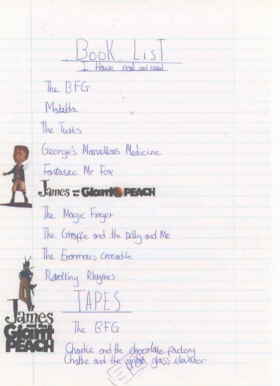 Book List
I Have read and
The BFG
Matilda
The Twits
George's Marvellous Medicine
Fantastic Mr Fox
James and the Giant PEACH
The Magic Finger
The Giraffe and the Pelly and Me
The Enormous Crocodile
Revolting Rhymes
TAPES
The BFG
James and the Giant PEACH
Charlie and the chocolate factory
Charlie and the great glass elevator